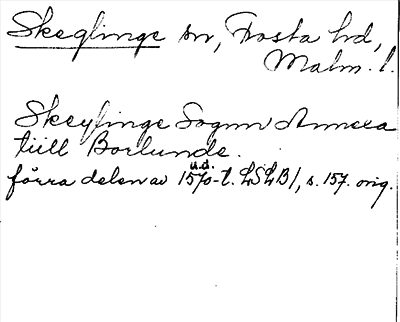 Skeglinge sn, Frosta hd,
Malm. l.
Skeglinge Sognn Annexa
tiill Borlunde.
u.d.
förra delen av 1570-t. LSLB1, s. 157. orig.